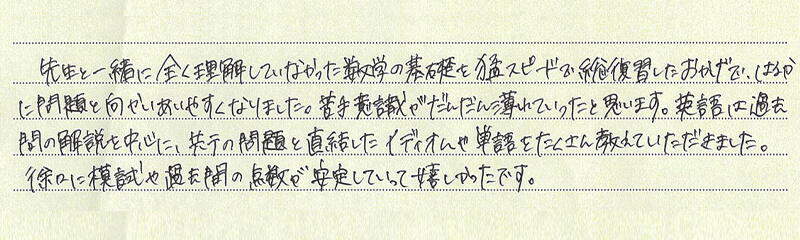 先生と一緒に全く理解していなかった数学の基礎を猛スピードで総復習したおかげで、はるか
に問題と向かいあいやすくなりました。苦手意識がだんだん薄れていったと思います。英語は過去
問の解説を中心に、共テの問題と直結したイディオムや単語をたくさん教えていただきました。
徐々に模試や過去問の点数が安定していって嬉しかったです。